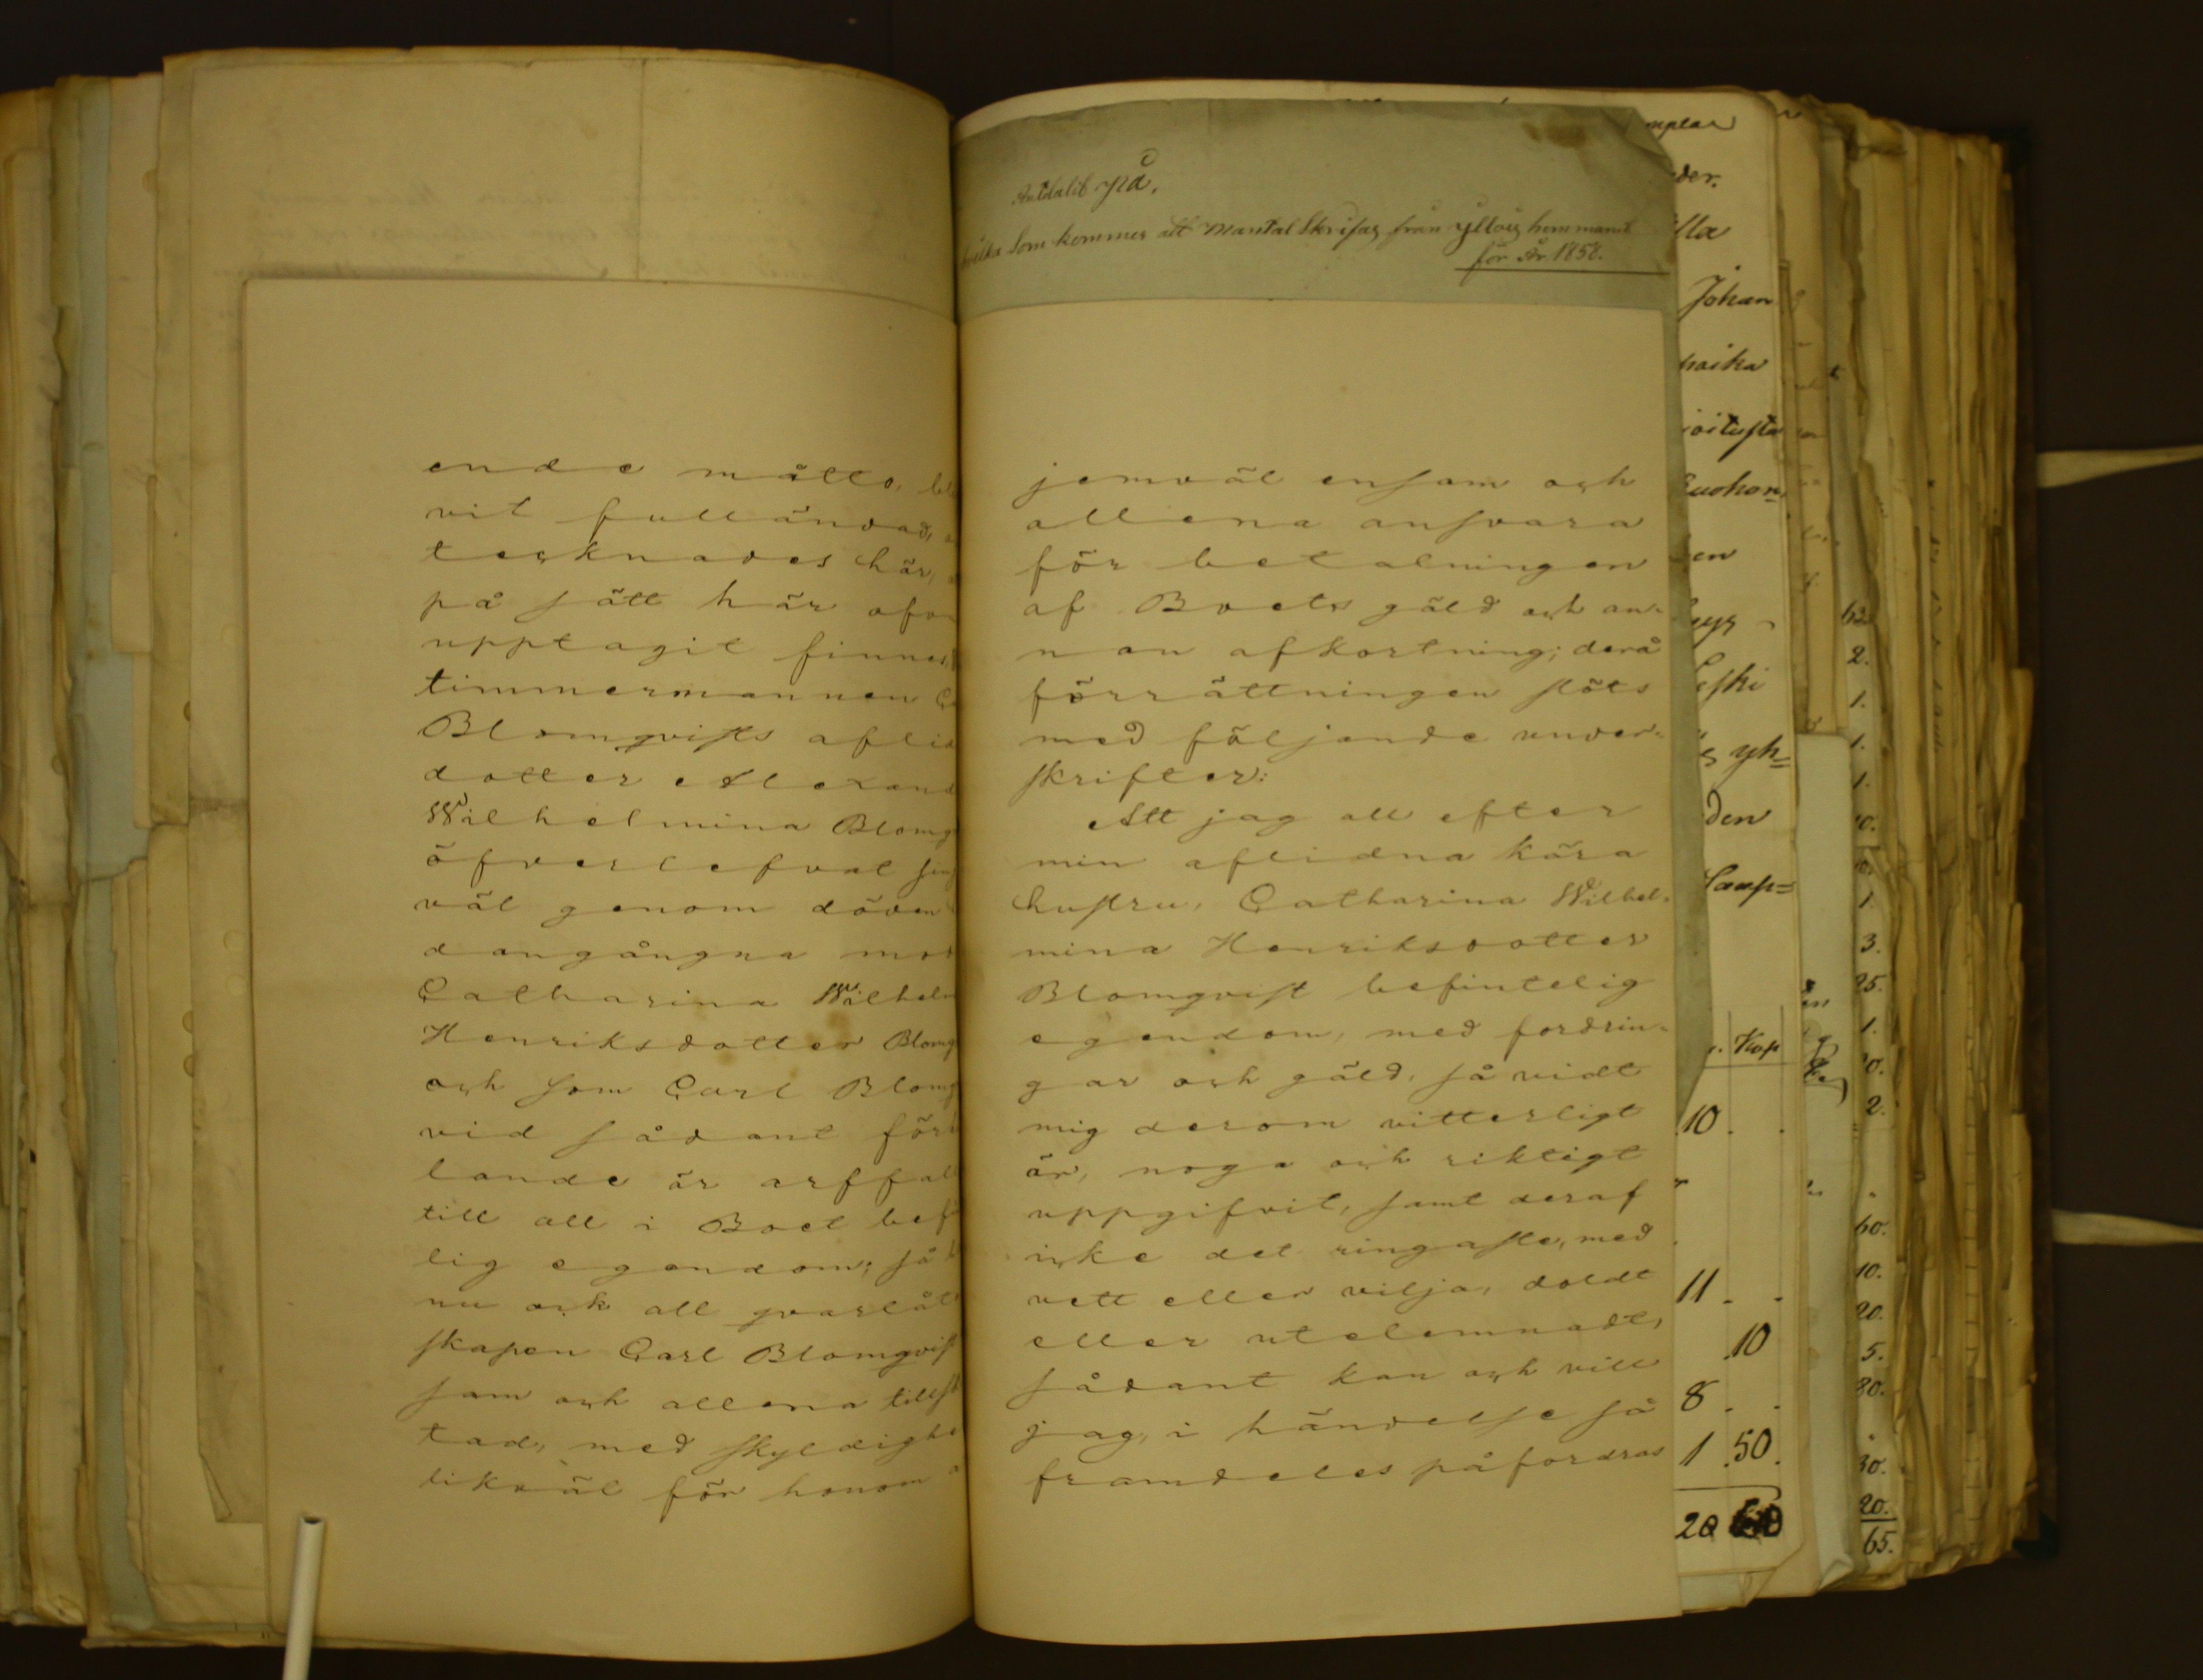 ende måtto, ble
vit fulländad,
tecknades här,
på sätt här ofvan
upptagit finnes,
timmermannen
Blomqvists aflid
dotter Alexand
Wilhelmina Blomq
öfverlefvat sin
väl genom döden
dangångna mor
Catharina Wilhelm
Henriksdotter Blomq
och som Carl Blomq
vid sådant för
lande är arffal
till all i Boet bef
lig egendom; så
nu ock all qvarlåt
skapen Carl Blomqvist
sam och allena tillst
tad, med skyldighe
likväl för honom
Antalit på,
hvilka Som kommer att MantalSkrifas från yllöis hemmanet
för År 1858.
jemväl ensam och
allena ansvara
för betalningen
af Boets gäld och an-
nan afkortning; derå
förrättningen slöts
med följande under-
skrifter:
Att jag all efter
min aflidna kära
hustru, Catharina Wilhel-
mina Henriksdotter
Blomqvist befintelig
egendom, med fordrin-
gar och gäld, så vidt
mig derom vitterligt
är, noga och riktigt
uppgifvit, samt deraf
icke det ringaste, med
vett eller vilja, doldt
eller utelemnadt,
sådant kan och vill
jag, i händelse så
framdeles påfordras
mplar
der.
lla
Johan
haika
oitusta
uohon
en
eski
yh=
den
Kaup=
Kop
10.
11.
.10
8.
1.50.
20
62.
2.
1.
1.
1.
10.
1.
3.
25.
1.
10.
2.
60.
10.
20.
5.
80.
30.
20.
65.